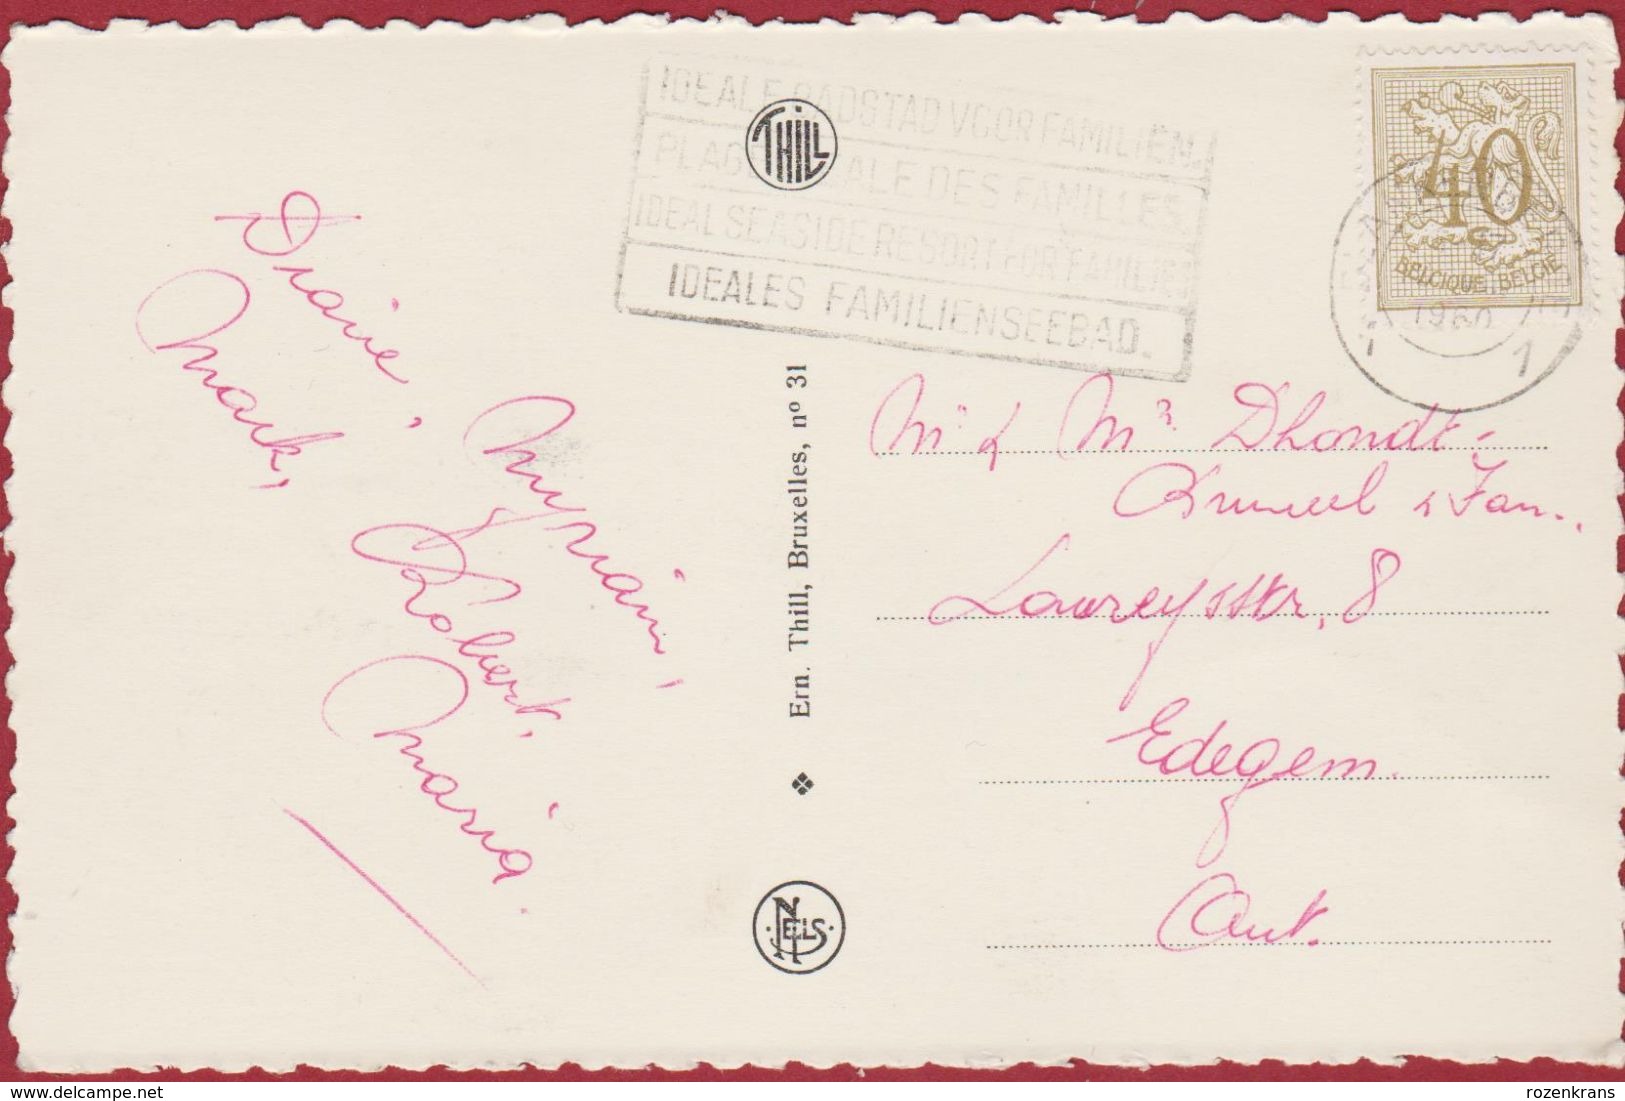 IDEALE BADSTAD VOOR FAMILIËN
PLAGE IDEALE DES FAMILLES
IDEAL SEASIDE RESORT FOR FAMILIES
IDEALES FAMILIENSEEBAD.
THILL
40
BELGIQUE-BELGIE
1960
1
Mark,
Myriam,
Robert,
Maria.
Ern. Thill, Bruxelles, nº 31
NELS
Mr & Mr Dhondt-
Bruneel & Fam.,
Lawreysstr, 8
Edegem.
Ant.
rozenkrans